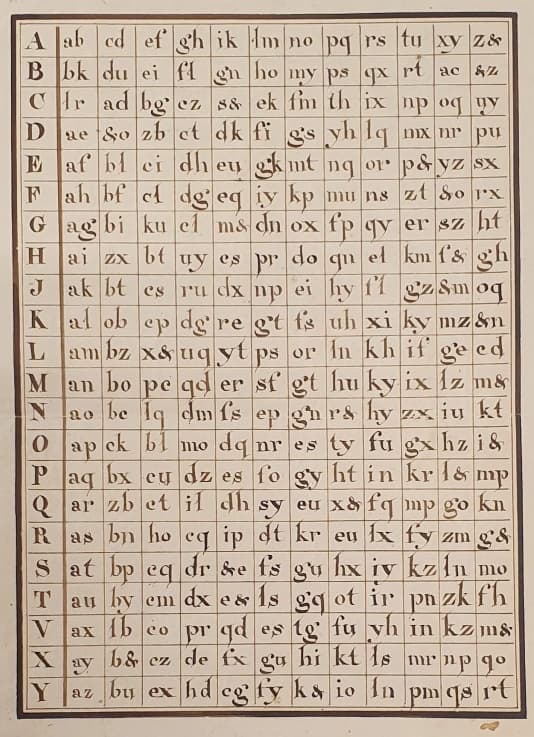 A ab cd ef gh ik lm no pq rs tu xy z&
B bk du ei fl gn ho my ps qx rt ac &z
C lr ad bg cz s& ek fm th ix np oq uy
D ae &o zb ct dk fi gs yh lq mx nr pu
E af bl ci dh eu gk mt nq or p& yz sx
F ah bf cl dg eq iy kp mu ns zt &o rx
G ag bi ku cl m& dn ox fp qy er sz ht
H ai zx bt uy cs pr do qn el km f& gh
J ak bt cs ru dx np ei hy fl gz &m oq
K al ob cp dg re gt fs uh xi ky mz &n
L am bz x& uq yt ps or ln kh if ge cd
M an bo pc qd er sf gt hu ky ix lz m&
N ao bc lq dm fs ep gn r& hy zx iu kt
O ap ck bl mo dq nr es ty fu gx hz i&
P aq bx cu dz es fo gy ht in kr l& mp
Q ar zb ct il dh sy eu x& fq mp go kn
R as bn ho cq ip dt kr eu lx fy zm g&
S at bp cq dr &e fs gu hx iy kz ln mo
T au by cm dx e& ls gq ot ir pn zk fh
V ax lb co pr qd es tg fu yh in kz m&
X ay b& cz de fx gu hi kt ls mr np qo
Y az bu ex hd cg fy k& io ln pm qs rt